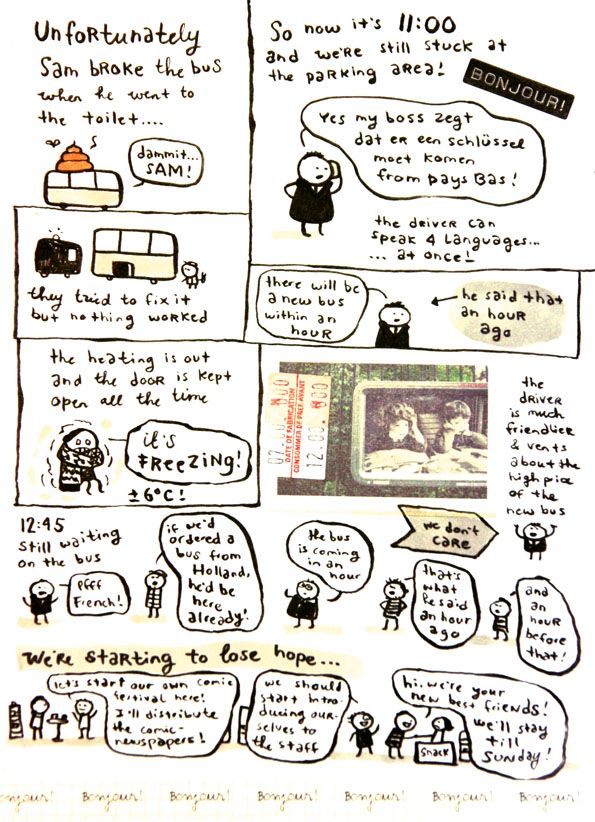 Unfortunately
Sam broke the bus
when he went to
the toilet....
dammit...
SAM!
So now it's 11:00
and we're still stuck at
the parking area!
BONJOUR!
Yes my boss zegt
dat er een schlüssel
moet komen
from pays Bas!
the driver can
speak 4 languages...
... at once!
they tried to fix it
but nothing worked
there will be
a new bus
within an
hour
he said that
an hour
ago
the heating is out
and the door is kept
open all the time
it's
FREEZING!
±6°C!
DATE DE FABRICATION
CONSOMMER DE PREF. AVANT
the
driver
is much
friendlier
& vents
about the
high price
of the
new bus
12:45
still waiting
on the bus
Pfff
French!
if we'd
ordered a
bus from
Holland,
he'd be
here
already!
the bus
is coming
in an
hour
we don't
care
that's
what
he said
an hour
ago
and
an
hour
before
that!
We're starting to lose hope...
let's start our own comic
festival here!
I'll distribute
the comic-
newspapers!
we should
start intro-
ducing our-
selves to
the staff
hi, we're your
new best friends!
we'll stay
till
Sunday!
Snack
Bonjour! Bonjour! Bonjour! Bonjour! Bonjour! Bonjour!